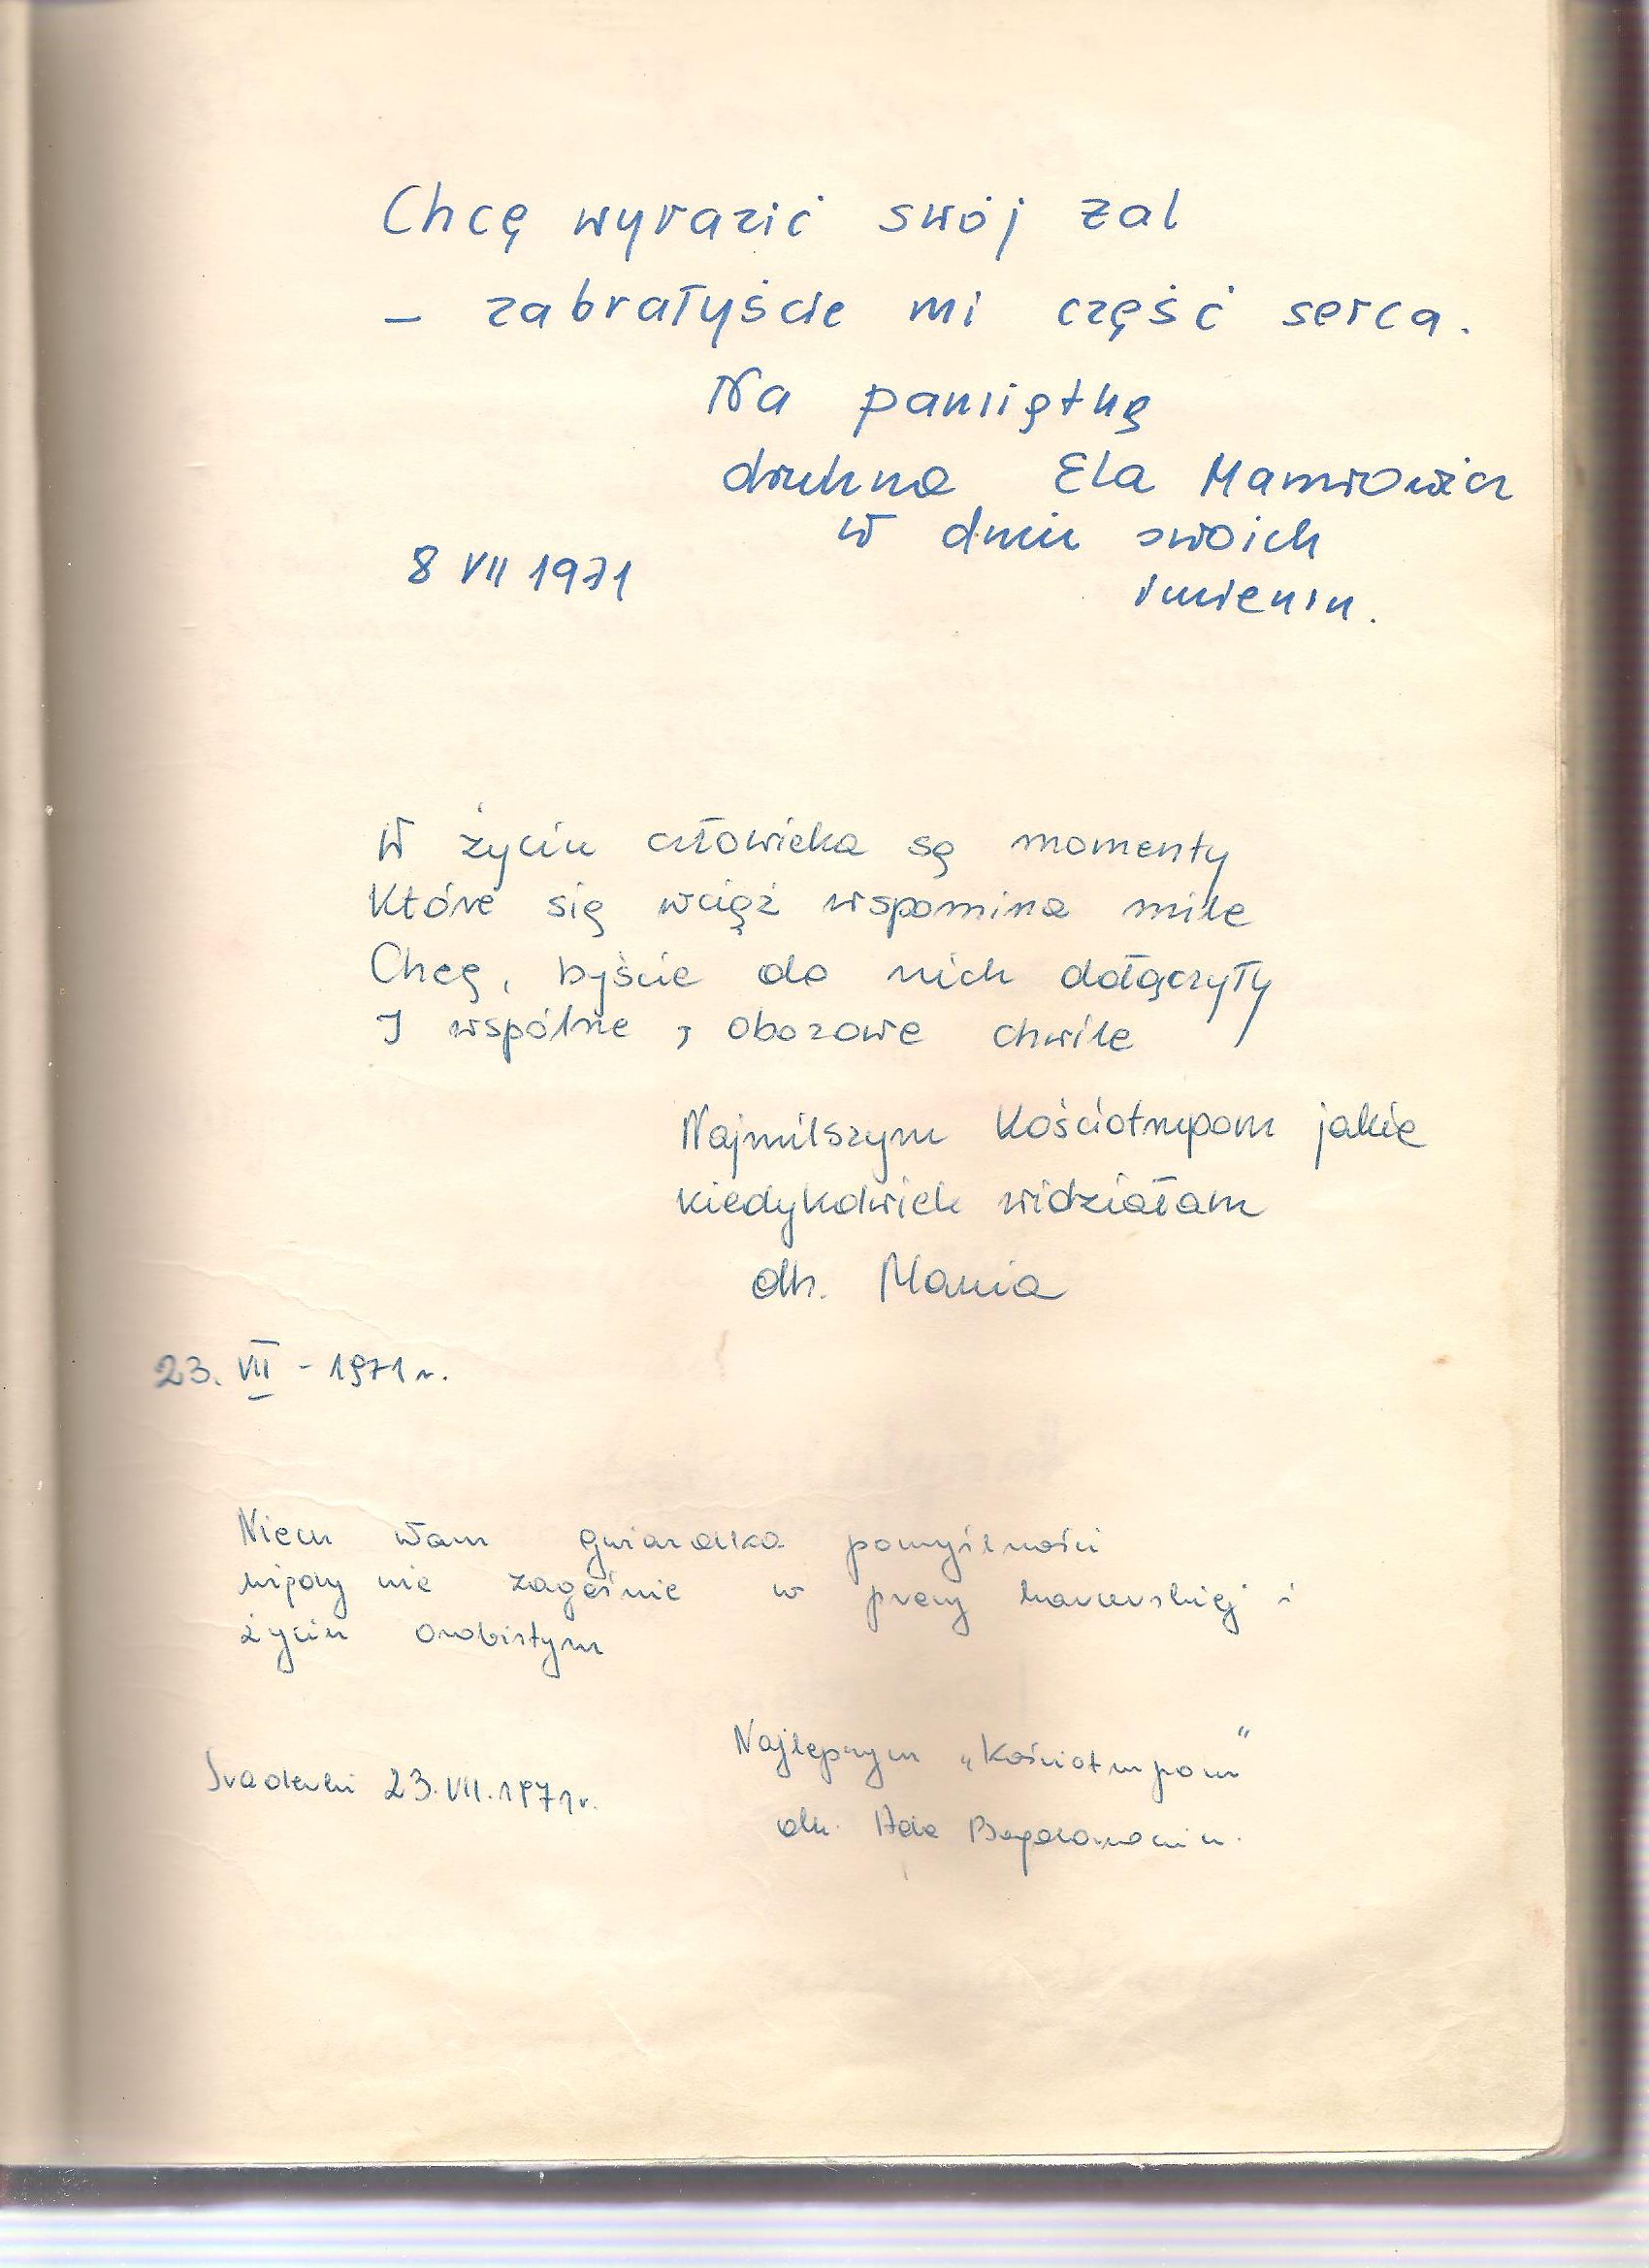 Chcę wyrazić swój żal
– zabrałyście mi część serca.
Na pamiątkę
druhna Ela
w dniu swoich
8 VII 1971
imienin.
W życiu człowieka są momenty
Które się wciąż wspomina mile
Chcę, byście do nich dołączyły
I wspólne, obozowe chwile
Najmilszym Kościotrupom jakie
kiedykolwiek widziałam
dh. Mania
23. VII - 1971 r.
Niech Wam gwiazdka pomyślności
nigdy nie zagaśnie w pracy harcerskiej i
życiu osobistym
Najlepszym „Kościotrupom"
23.VII.1971r.
dh. Ada